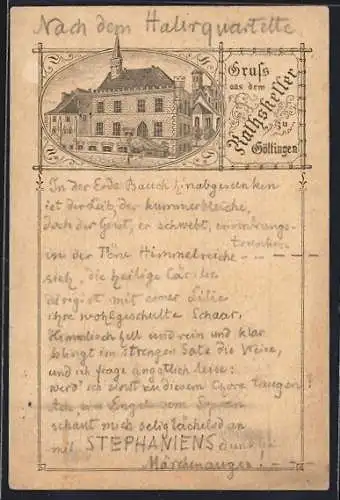 Nach dem Halirquartette
Gruss
aus dem
Rathskeller
zu
Göttingen
In der Erde Bauch hinabgesunken
ist der Leib, der kummerbleiche,
doch der Geist, er schwebt,
in der Töne Himmelreiche
sich, die heilige Cäcilie
dirigirt mit einer Lilie
ihre wohlgeschulte Schaar,
Himmlisch hell und rein und klar
klingt im strengen Satz die Weise,
und ich frage ängstlich leise:
werd' ich einst zu diesem Chore taugen
Ach, ein Engel vom
schaut mich seliglächelnd an
mit STEPHANIENS dunkle
Märchenaugen!